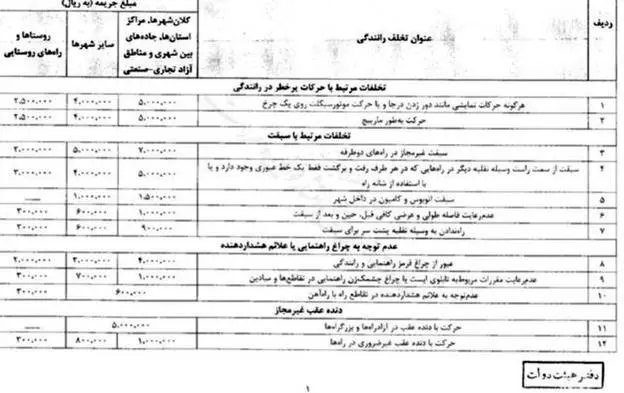 مبلغ جریمه (به ریال)
ردیف
عنوان تخلف رانندگی
کلان‌شهرها، مراکز استان‌ها، جاده‌های بین شهری و مناطق آزاد تجاری-صنعتی
سایر شهرها
روستاها و راه‌های روستایی
تخلفات مرتبط با حرکات پرخطر در رانندگی
۱ هرگونه حرکات نمایشی مانند دور زدن درجا و یا حرکت موتورسیکلت روی یک چرخ ۵.۰۰۰.۰۰۰ ۴.۰۰۰.۰۰۰ ۲.۵۰۰.۰۰۰
۲ حرکت به‌طور مارپیچ ۵.۰۰۰.۰۰۰ ۴.۰۰۰.۰۰۰ ۲.۵۰۰.۰۰۰
تخلفات مرتبط با سبقت
۳ سبقت غیرمجاز در راه‌های دوطرفه ۷.۰۰۰.۰۰۰ ۵.۰۰۰.۰۰۰ ۳.۰۰۰.۰۰۰
۴ سبقت از سمت راست وسیله نقلیه دیگر در راه‌هایی که در هر طرف رفت و برگشت فقط یک خط عبوری وجود دارد و یا ۵.۰۰۰.۰۰۰ ۴.۰۰۰.۰۰۰ ۳.۰۰۰.۰۰۰
با استفاده از شانه راه
۵ سبقت اتوبوس و کامیون در داخل شهر ۱.۵۰۰.۰۰۰ ۱.۰۰۰.۰۰۰ ——
۶ عدم‌رعایت فاصله طولی و عرضی کافی قبل، حین و بعد از سبقت ۱.۰۰۰.۰۰۰ ۶۰۰.۰۰۰ ۳۰۰.۰۰۰
۷ راه‌ندادن به وسیله نقلیه پشت سر برای سبقت ۹۰۰.۰۰۰ ۶۰۰.۰۰۰ ۳۰۰.۰۰۰
عدم توجه به چراغ راهنمایی یا علائم هشداردهنده
۸ عبور از چراغ قرمز راهنمایی و رانندگی ۴.۰۰۰.۰۰۰ ۳.۰۰۰.۰۰۰ ۲.۰۰۰.۰۰۰
۹ عدم‌رعایت مقررات مربوط‌به تابلوی ایست یا چراغ چشمک‌زن راهنمایی در تقاطع‌ها و میادین ۱.۰۰۰.۰۰۰ ۷۰۰.۰۰۰ ۳۰۰.۰۰۰
۱۰ عدم‌توجه به علائم هشداردهنده در تقاطع راه با راه‌آهن ۶۰۰.۰۰۰ ۳۰۰.۰۰۰
دنده عقب غیرمجاز
۱۱ حرکت با دنده عقب در آزادراه‌ها و بزرگراه‌ها ۵.۰۰۰.۰۰۰ ——
۱۲ حرکت با دنده عقب غیرضروری در راه‌ها ۱.۰۰۰.۰۰۰ ۸۰۰.۰۰۰ ۳۰۰.۰۰۰
دفتر هیئت دولت
۱